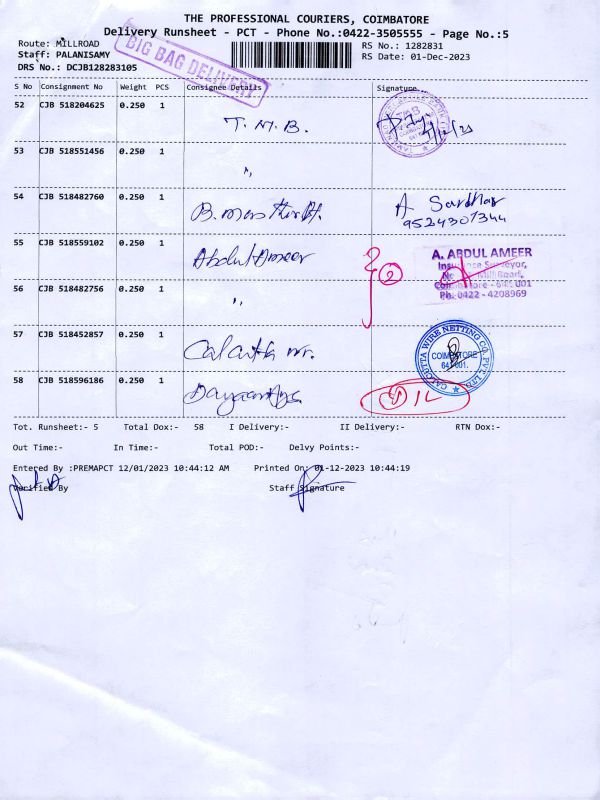 THE PROFESSIONAL COURIERS, COIMBATORE
Delivery Runsheet - PCT - Phone No.:0422-3505555 - Page No.:5
Route: MILLROAD
RS No.: 1282831
Staff: PALANISAMY
RS Date: 01-Dec-2023
DRS No.: DCJB128283105
BIG BAG DELIVERY
S No Consignment No Weight PCS Consignee Details Signature
52 CJB 518204625 0.250 1 T.M.B.
53 CJB 518551456 0.250 1 "
54 CJB 518482760 0.250 1 B. A Sardhar
9524307344
55 CJB 518559102 0.250 1 Abdul Ameer 2
A. ABDUL AMEER
Insurance Surveyor,
Mill Road,
Coimbatore - 641 001
Ph: 0422 - 4208969
56 CJB 518482756 0.250 1 "
57 CJB 518452857 0.250 1
CALCUTTA WIRE NETTING CO. PVT. LTD.
COIMBATORE
641 001.
58 CJB 518596186 0.250 1
Tot. Runsheet:- 5 Total Dox:- 58 I Delivery:- II Delivery:- RTN Dox:-
Out Time:- In Time:- Total POD:- Delvy Points:-
Entered By :PREMAPCT 12/01/2023 10:44:12 AM Printed On: 01-12-2023 10:44:19
Verified By Staff Signature